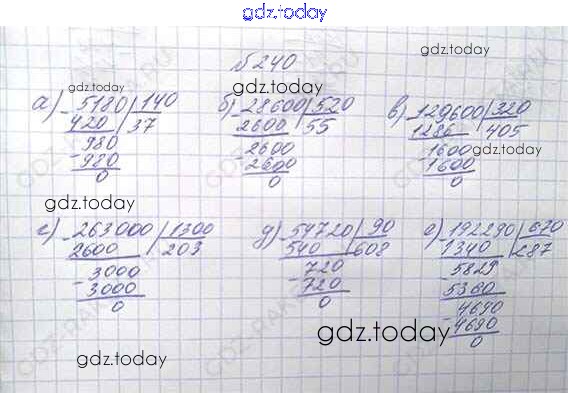 gdz.today
gdz.today
№240
gdz.today gdz.today
а) -5180 | 140
420 | 37
980
-980
0
б) -28600 | 520
2600 | 55
2600
-2600
0
в) 129600 | 320
1286 | 405
-1600
1600
0
gdz.today
gdz.today
г) -263000 | 1300
2600 | 203
3000
-3000
0
д) -54720 | 90
540 | 608
720
-720
0
е) -192290 | 670
1340 | 287
-5829
5360
4690
-4690
0
gdz.today
gdz.today